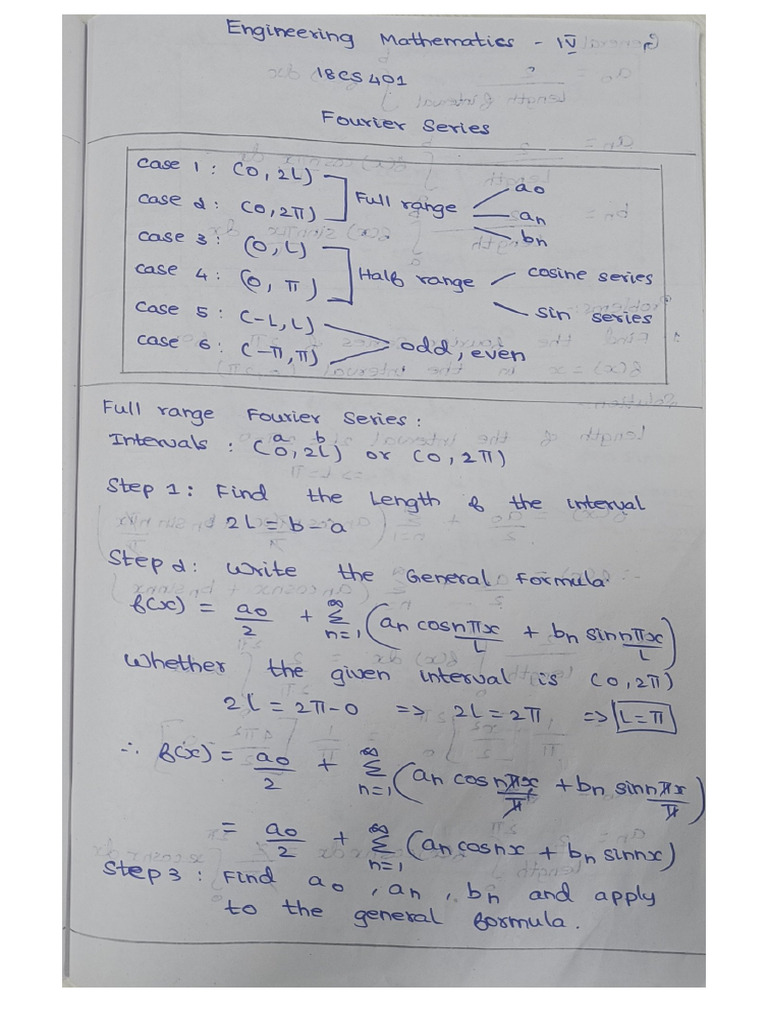 Engineering Mathematics - IV
18CS401
Fourier Series
Case 1 : (0, 2L)
Case 2 : (0, 2π)
Full range
a0
an
bn
Case 3 : (0, L)
Case 4 : (0, π)
Half range
cosine series
sin series
Case 5 : (-L, L)
Case 6 : (-π, π)
odd, even
Full range Fourier Series :
a b
Intervals : (0, 2L) or (0, 2π)
Step 1 : Find the Length of the interval
2L = b - a
Step 2 : Write the General Formula
f(x) = a0/2 + ∞Σn=1 (an cos nπx/L + bn sin nπx/L)
Whether the given interval is (0, 2π)
2L = 2π - 0 => 2L = 2π => L = π
∴ f(x) = a0/2 + ∞Σn=1 (an cos nπx/π + bn sin nπx/π)
= a0/2 + ∞Σn=1 (an cosnx + bn sinnx)
Step 3 : Find a0, an, bn and apply
to the general formula.